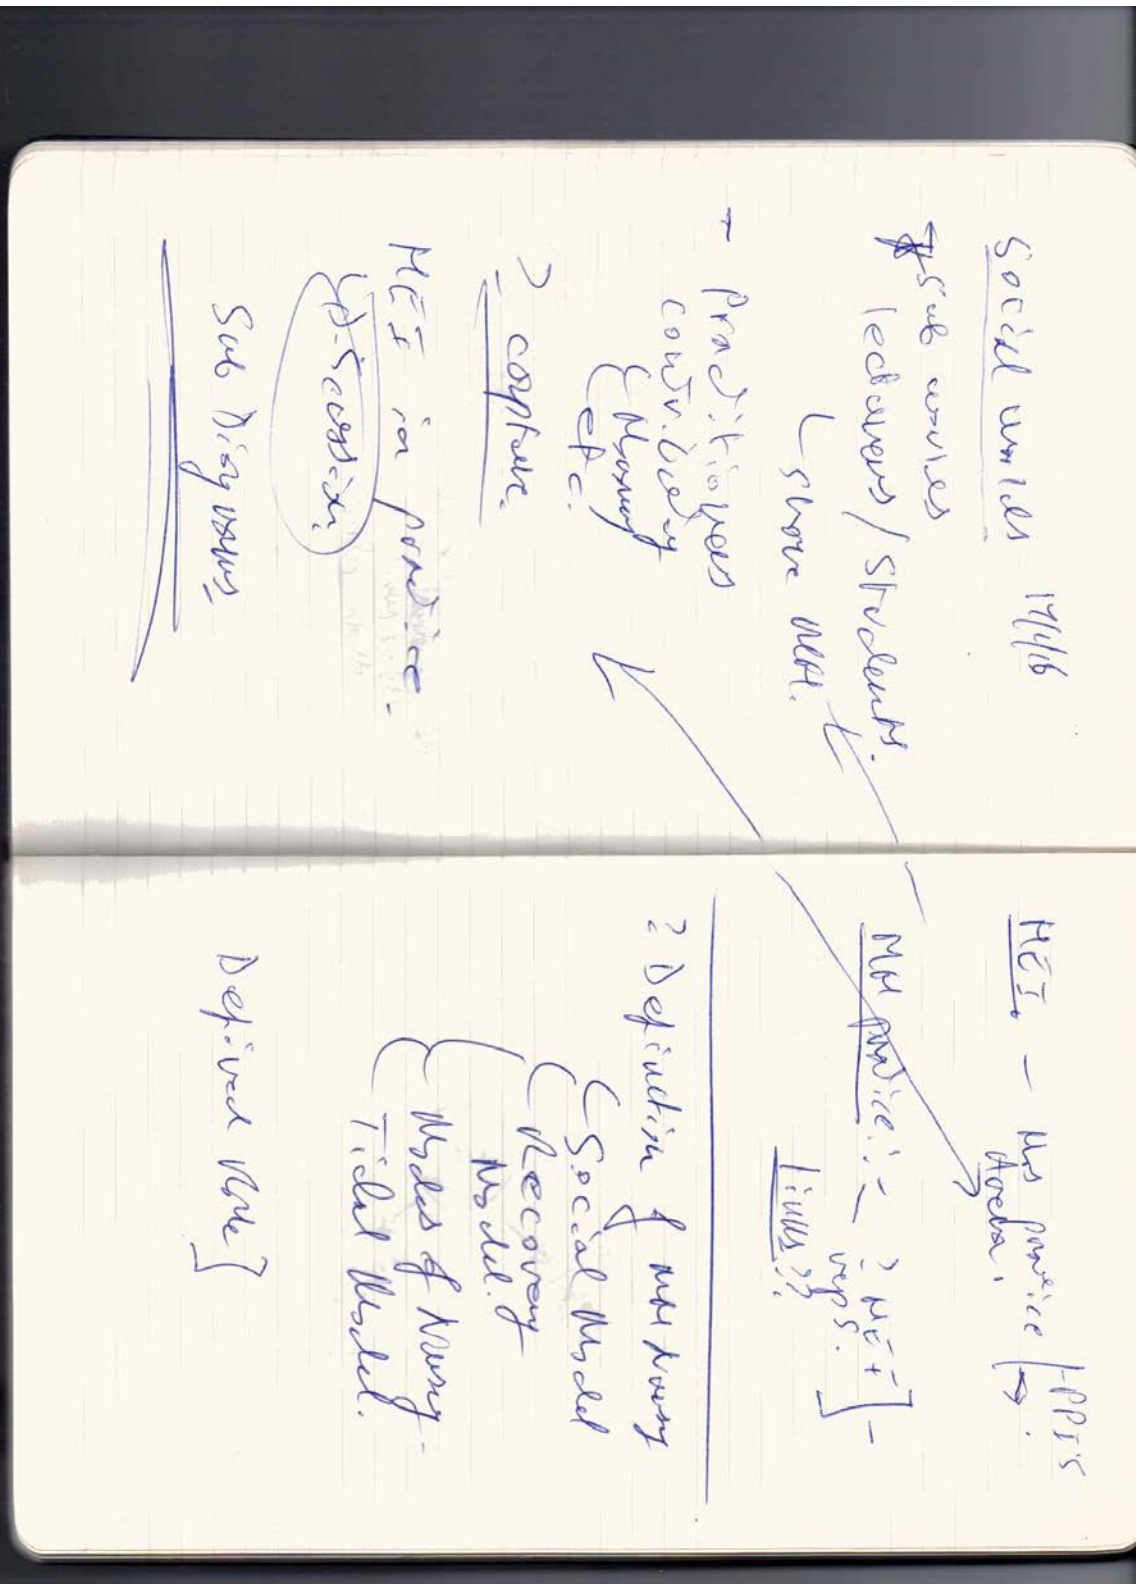 Social worlds 17/4/16
Sub worlds
lecturers / Students.
Share MH.
- Practitioners
contributing
Nursing
etc.
?
HEI in practice -
Discussion
Sub Diagrams
HEI. - practice / - PPI's
MH practice: - ? HEI -
links ??
? Definition of MH Nursing
Social Model
Recovery
Model.
Models of Nursing -
Tidal Model.
Defined Role]